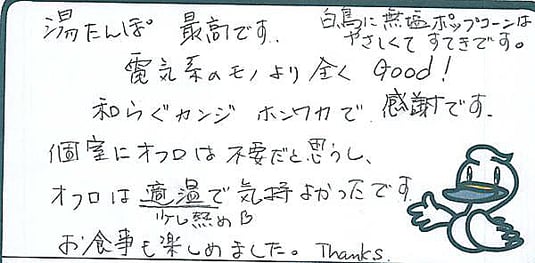 湯たんぽ 最高です.
白鳥に無塩ポップコーンは
やさしくて すてきです。
電気系のモノより全く Good!
和らぐカンジ ホンワカで 感謝です.
個室にオフロは不要だと思うし、
オフロは 適温で気持よかったです
少し熱め
お食事も楽しめました。Thanks.